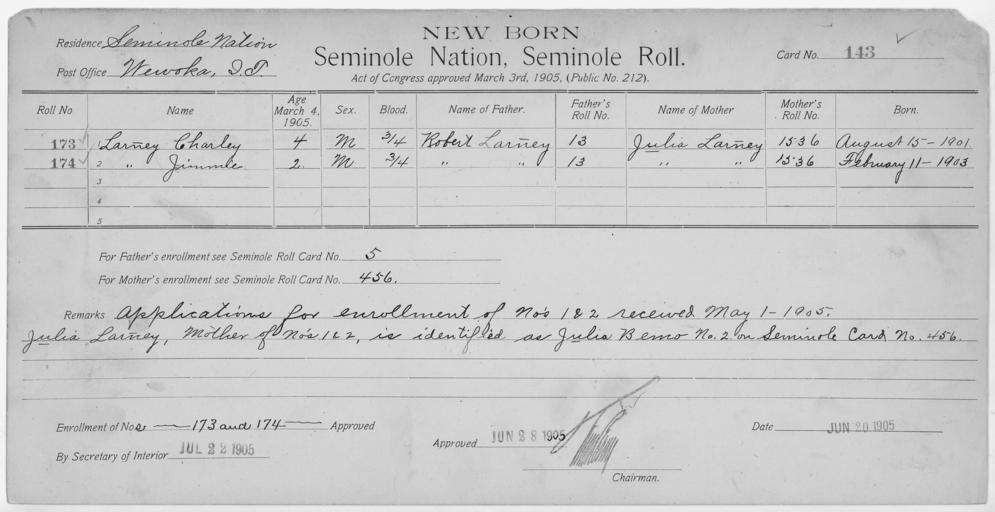 NEW BORN
Residence Seminole Nation
Seminole Nation, Seminole Roll.
Card No. 143
Post Office Wewoka, I.T.
Act of Congress approved March 3rd, 1905, (Public No. 212).
Roll No Name Age March 4, 1905. Sex. Blood. Name of Father. Father's Roll No. Name of Mother Mother's Roll No. Born.
173 1 Larney Charley 4 M 3/4 Robert Larney 13 Julia Larney 1536 August 15-1901
174 2 " Jimmie 2 M 3/4 " " 13 " " 1536 February 11-1903
3
4
5
For Father's enrollment see Seminole Roll Card No. 5
For Mother's enrollment see Seminole Roll Card No. 456.
Remarks Applications for enrollment of No's 1&2 received May 1-1905.
Julia Larney, Mother of No's 1&2, is identified as Julia Bemo No. 2 on Seminole Card No. 456.
Enrollment of Nos 173 and 174 Approved
By Secretary of Interior JUL 22 1905
Approved JUN 28 1905
Chairman.
Date JUN 20 1905